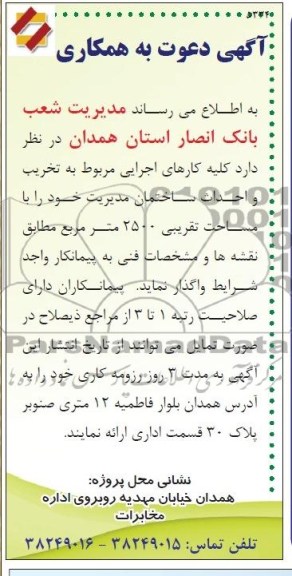 ۵۳۲۴۰
آگهی دعوت به همکاری
به اطلاع می رساند مدیریت شعب
بانک انصار استان همدان در نظر
دارد کلیه کارهای اجرایی مربوط به تخریب
و احداث ساختمان مدیریت خود را با
مساحت تقریبی ۲۵۰۰ متر مربع مطابق
نقشه ها و مشخصات فنی به پیمانکار واجد
شرایط واگذار نماید. پیمانکاران دارای
صلاحیت رتبه ۱ تا ۳ از مراجع ذیصلاح در
صورت تمایل می توانند از تاریخ انتشار این
آگهی به مدت ۳ روز رزومه کاری خود را به
آدرس همدان بلوار فاطمیه ۱۲ متری صنوبر
پلاک ۳۰ قسمت اداری ارائه نمایند.
نشانی محل پروژه:
همدان خیابان مهدیه روبروی اداره
مخابرات
تلفن تماس: ۳۸۲۴۹۰۱۵ - ۳۸۲۴۹۰۱۶